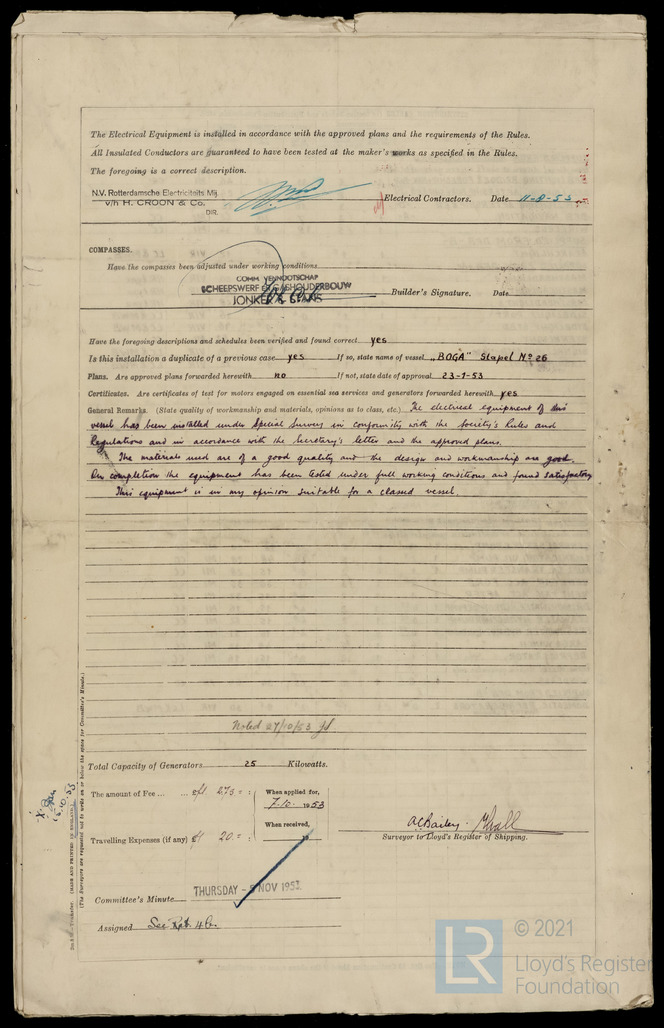 The Electrical Equipment is installed in accordance with the approved plans and the requirements of the Rules.
All Insulated Conductors are guaranteed to have been tested at the maker's works as specified in the Rules.
The foregoing is a correct description.
N.V. Rotterdamsche Electriciteits Mij.
v/h H. CROON & Co.
DIR.
Electrical Contractors. Date 11-8-53
COMPASSES.
Have the compasses been adjusted under working conditions
COMM. VENNOOTSCHAP
SCHEEPSWERF EN GASHOUDERBOUW
JONKER & STANS
Builder's Signature. Date
Have the foregoing descriptions and schedules been verified and found correct yes
Is this installation a duplicate of a previous case yes If so, state name of vessel „BOGA" Stapel No 26
Plans. Are approved plans forwarded herewith no If not, state date of approval 23-1-53
Certificates. Are certificates of test for motors engaged on essential sea services and generators forwarded herewith yes
General Remarks. (State quality of workmanship and materials, opinions as to class, etc.) The electrical equipment of this
vessel has been installed under Special Survey in conformity with the Society's Rules and
Regulations and in accordance with the Secretary's letter and the approved plans.
The materials used are of a good quality and the design and workmanship are good.
On completion the equipment has been tested under full working conditions and found satisfactory
This equipment is in my opinion suitable for a classed vessel.
Noted 27/10/53
Total Capacity of Generators 25 Kilowatts.
The amount of Fee ... ... fl. 273 = :
When applied for,
7.10. 1953
When received,
19
Travelling Expenses (if any) fl 20 = :
A C Bailey.
Surveyor to Lloyd's Register of Shipping.
Committee's Minute THURSDAY - 5 NOV 1953
Assigned See Rpt. 4b.
(MADE AND PRINTED IN ENGLAND.)
(The Surveyors are requested not to write on or below the space for Committee's Minute.)
16.10.53
LR
© 2021
Lloyd's Register
Foundation